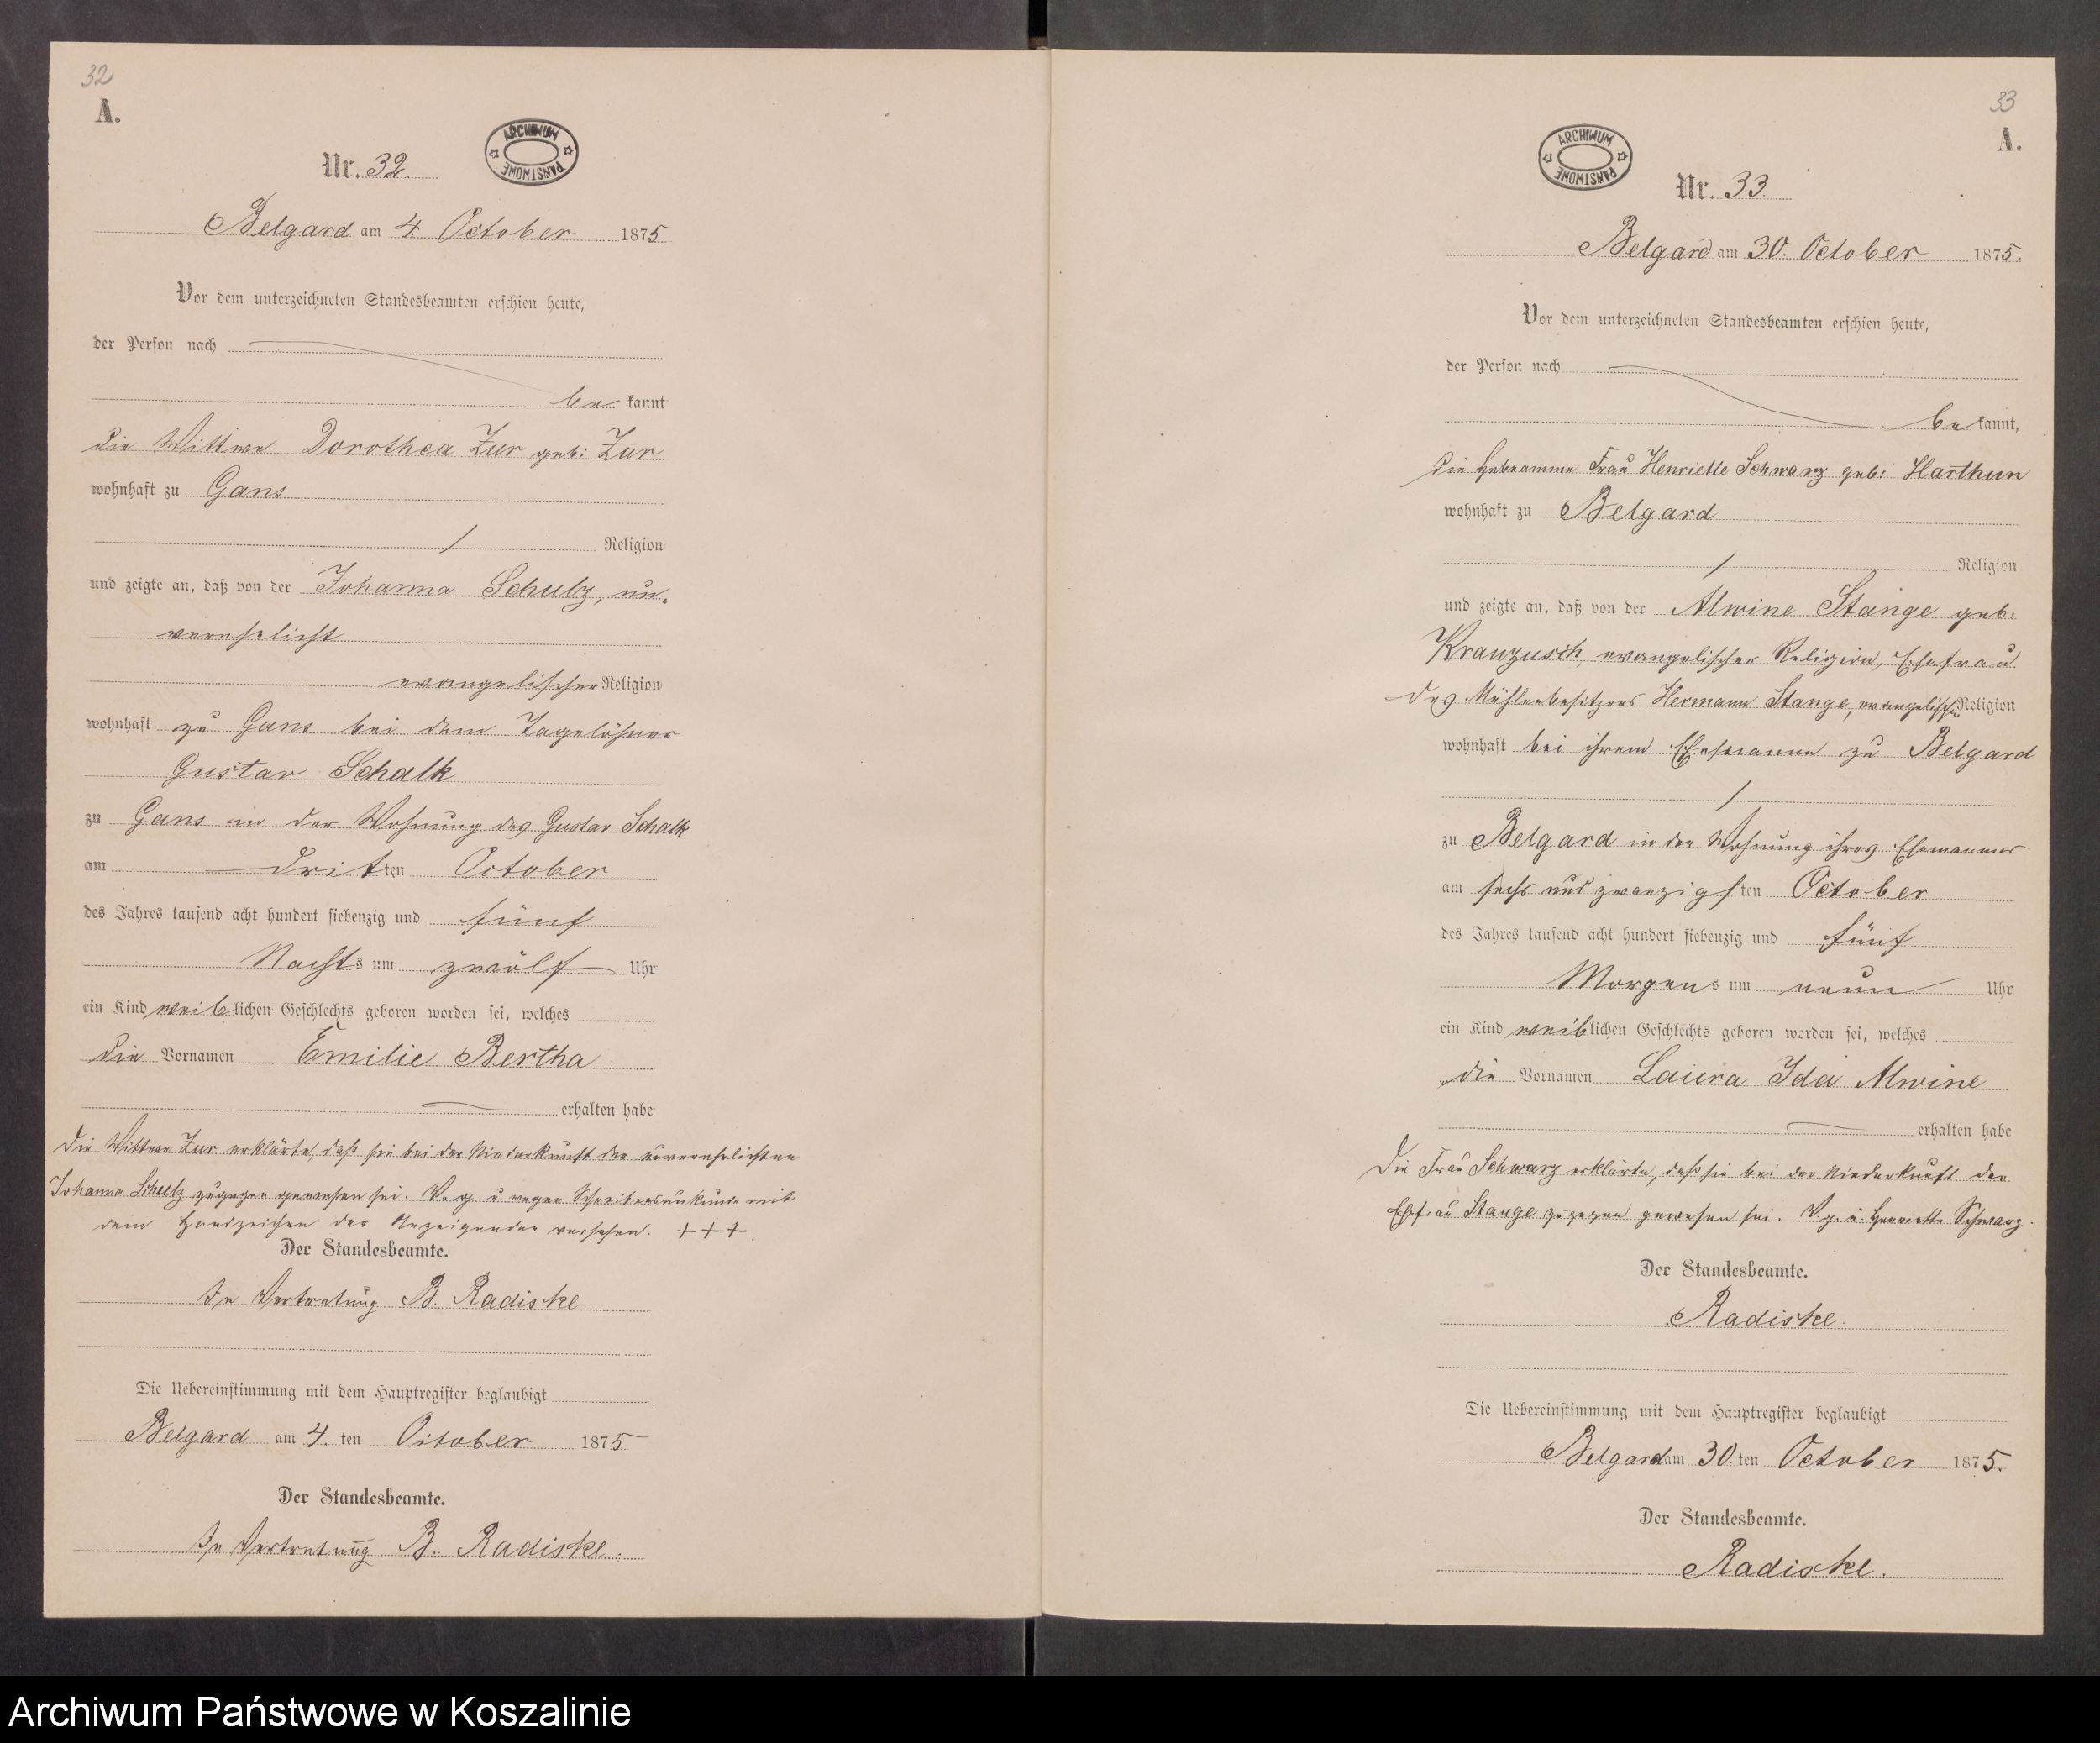 32
A.
ARCHIWUM PAŃSTWOWE
Nr. 32.
Belgard am 4 October 1875
Vor dem unterzeichneten Standesbeamten erschien heute,
der Person nach
be kannt
die Wittwe Dorothea Zur geb: Zur
wohnhaft zu Gans
/ Religion
und zeigte an, daß von der Johanna Schulz, un-
verehelicht
evangelischer Religion
wohnhaft zu Gans bei dem Tagelöhner
Gustav Schalk
zu Gans in der Wohnung des Gustav Schalk
am dritten October
des Jahres tausend acht hundert siebenzig und fünf
Nachts um zwölf Uhr
ein Kind weiblichen Geschlechts geboren worden sei, welches
die Vornamen Emilie Bertha
erhalten habe
Die Wittwe Zur erklärte, daß sie bei der Niederkunft der unverehelichten
Johanna Schulz zugegen gewesen sei. V. g. u. wegen Schreibensunkunde mit
dem Handzeichen der Anzeigenden versehen. +++.
Der Standesbeamte.
In Vertretung B. Radiske
Die Uebereinstimmung mit dem Hauptregister beglaubigt
Belgard am 4. ten October 1875
Der Standesbeamte.
In Vertretung B. Radiske.
33
A.
ARCHIWUM PAŃSTWOWE
Nr. 33.
Belgard am 30. October 1875.
Vor dem unterzeichneten Standesbeamten erschien heute,
der Person nach
be kannt,
die Hebeamme Frau Henriette Schwarz geb: Harthun
wohnhaft zu Belgard
/ Religion
und zeigte an, daß von der Alwine Stange geb:
Kranzusch, evangelischer Religion, Ehefrau
des Mühlenbesitzers Hermann Stange, evangelischer Religion
wohnhaft bei ihrem Ehemanne zu Belgard
/
zu Belgard in der Wohnung ihres Ehemannes
am sechs und zwanzigsten October
des Jahres tausend acht hundert siebenzig und fünf
Morgens um neun Uhr
ein Kind weiblichen Geschlechts geboren worden sei, welches
die Vornamen Laura Ida Alwine
erhalten habe
Die Frau Schwarz erklärte, daß sie bei der Niederkunft der
Ehefrau Stange zugegen gewesen sei. V. g. u. Henriette Schwarz.
Der Standesbeamte.
Radiske.
Die Uebereinstimmung mit dem Hauptregister beglaubigt
Belgard am 30. ten October 1875.
Der Standesbeamte.
Radiske.
Archiwum Państwowe w Koszalinie